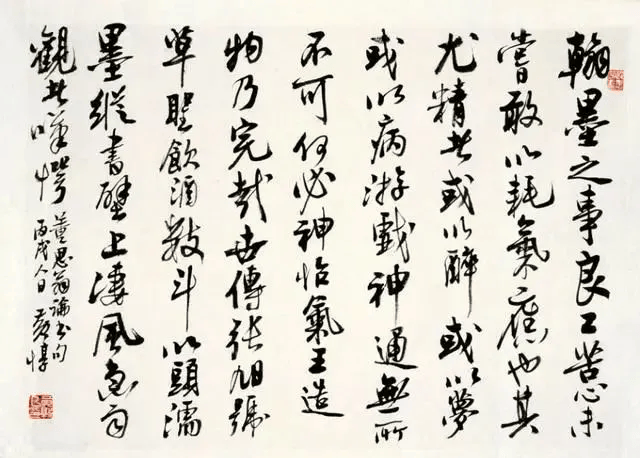 翰墨之事良工苦心未
嘗敢以耗氣應也其
尤精者或以醉或以夢
或以病游戲神通無所
不可何必神怡氣王造
物乃完哉世傳張旭號
草聖飲酒數斗以頭濡
墨縱書壁上淒風急雨
觀者嘆愕
董思翁論書句
丙戌人日 黄惇